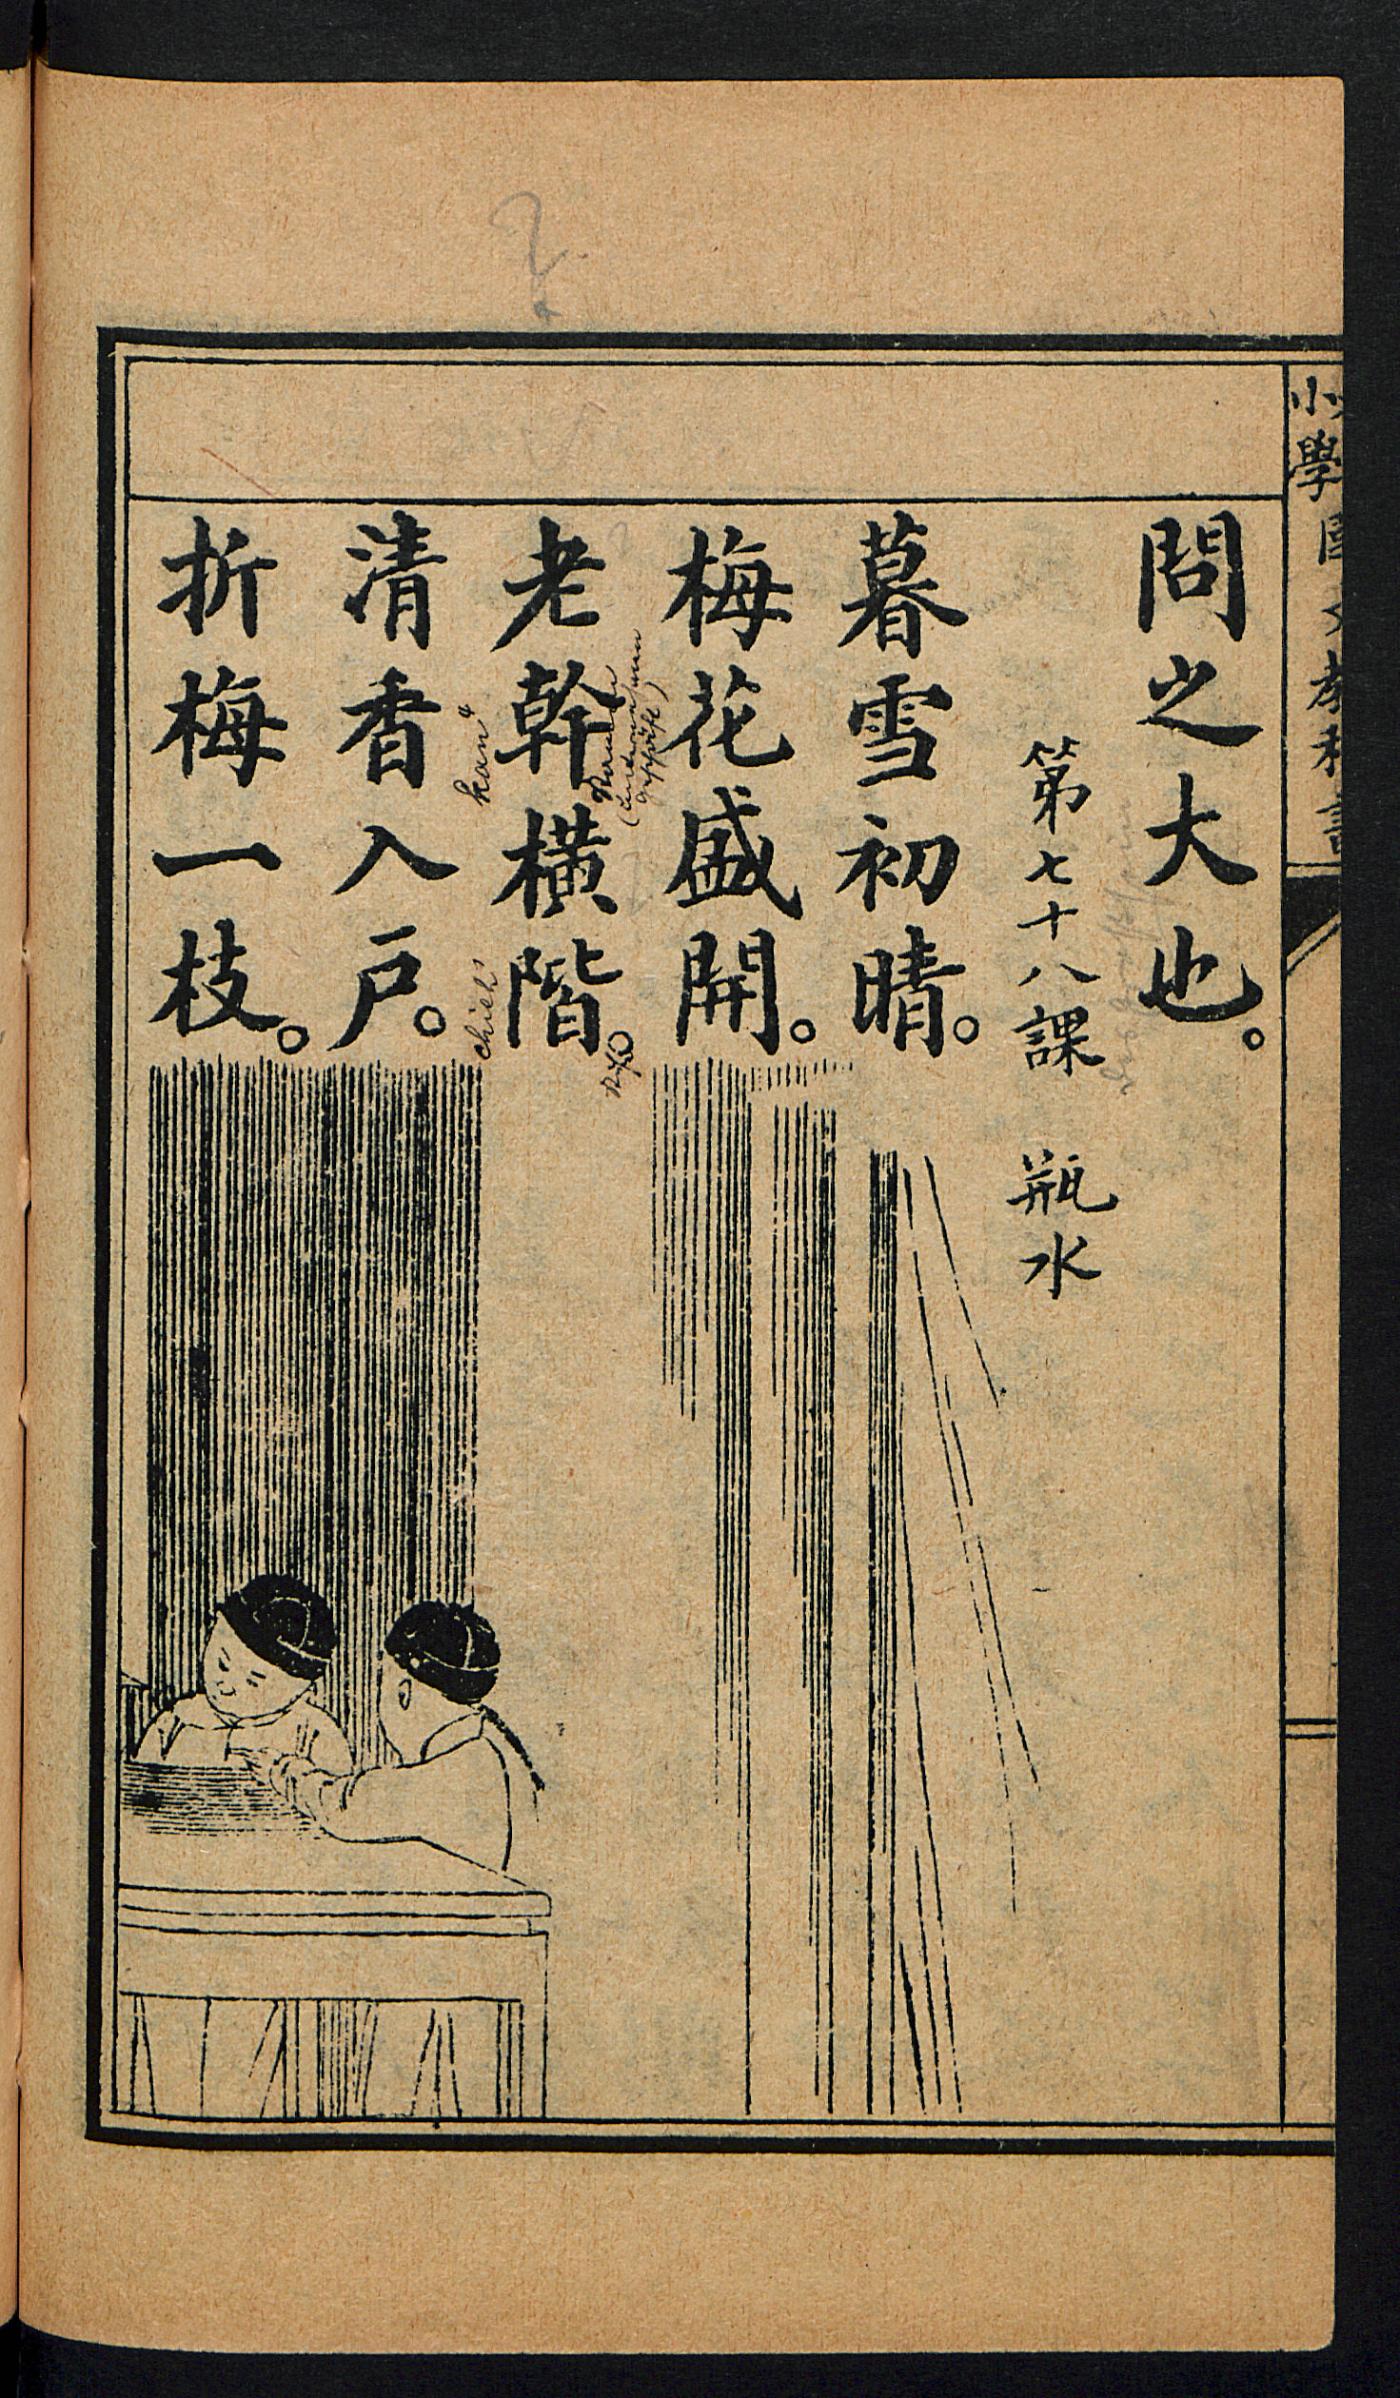 小學國文教科書
問之大也。
第七十八課 瓶水
暮雪初晴。
梅花盛開。
老幹橫階。
清香入戶。
折梅一枝。
kan⁴
chieh¹